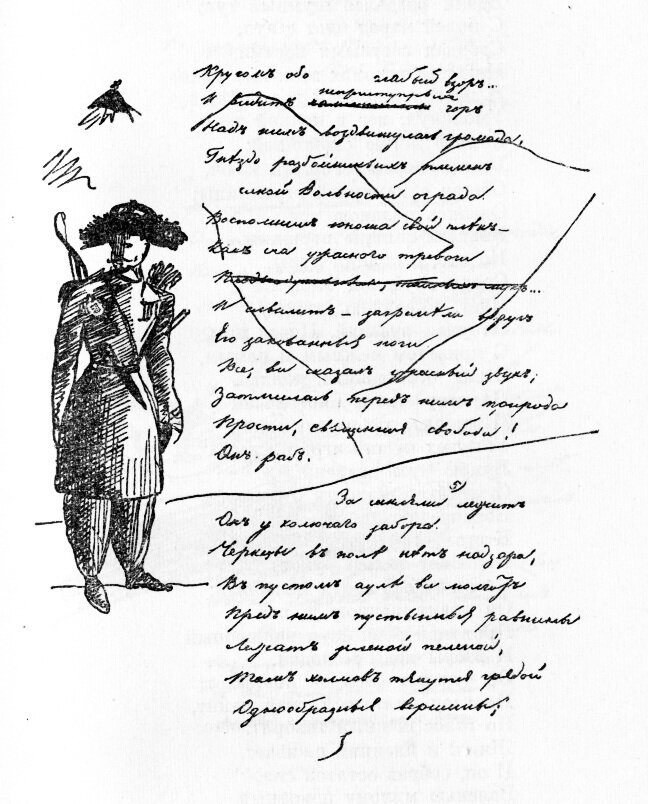 Кругомъ обо слабый взоръ...
неприступныхъ
И видитъ горъ
Надъ нимъ воздвигнулась громада,
Гнѣздо разбойничьихъ племенъ
Воспомнилъ юноша свой плѣнъ —
Какъ сна ужаснаго тревоги
И слышитъ — загремѣли вдругъ
Его закованныя ноги
Все, все сказалъ ужасный звукъ;
Затмилась передъ нимъ природа
Прости, священная свобода!
Онъ рабъ.
За саклями 5) лежитъ
Онъ у колючаго забора.
Черкесы въ полѣ нѣтъ надзора,
Въ пустомъ аулѣ все молчитъ
Предъ нимъ пустынныя равнины
Лежатъ зеленой пеленой,
Тамъ холмовъ тянутся грядой
Однообразныя вершины;